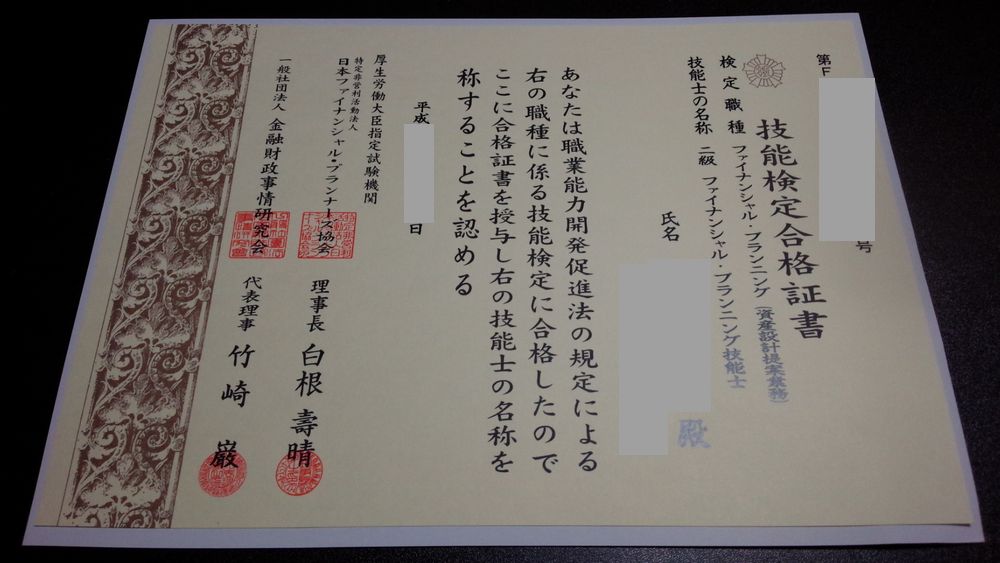 第F 号
技能検定合格証書
検定職種 ファイナンシャル・プランニング（資産設計提案業務）
技能士の名称 二級 ファイナンシャル・プランニング技能士
氏名 殿
あなたは職業能力開発促進法の規定による
右の職種に係る技能検定に合格したので
ここに合格証書を授与し右の技能士の名称を
称することを認める
平成 日
厚生労働大臣指定試験機関
特定非営利活動法人
日本ファイナンシャル・プランナーズ協会 理事長 白根壽晴
一般社団法人 金融財政事情研究会 代表理事 竹崎巌